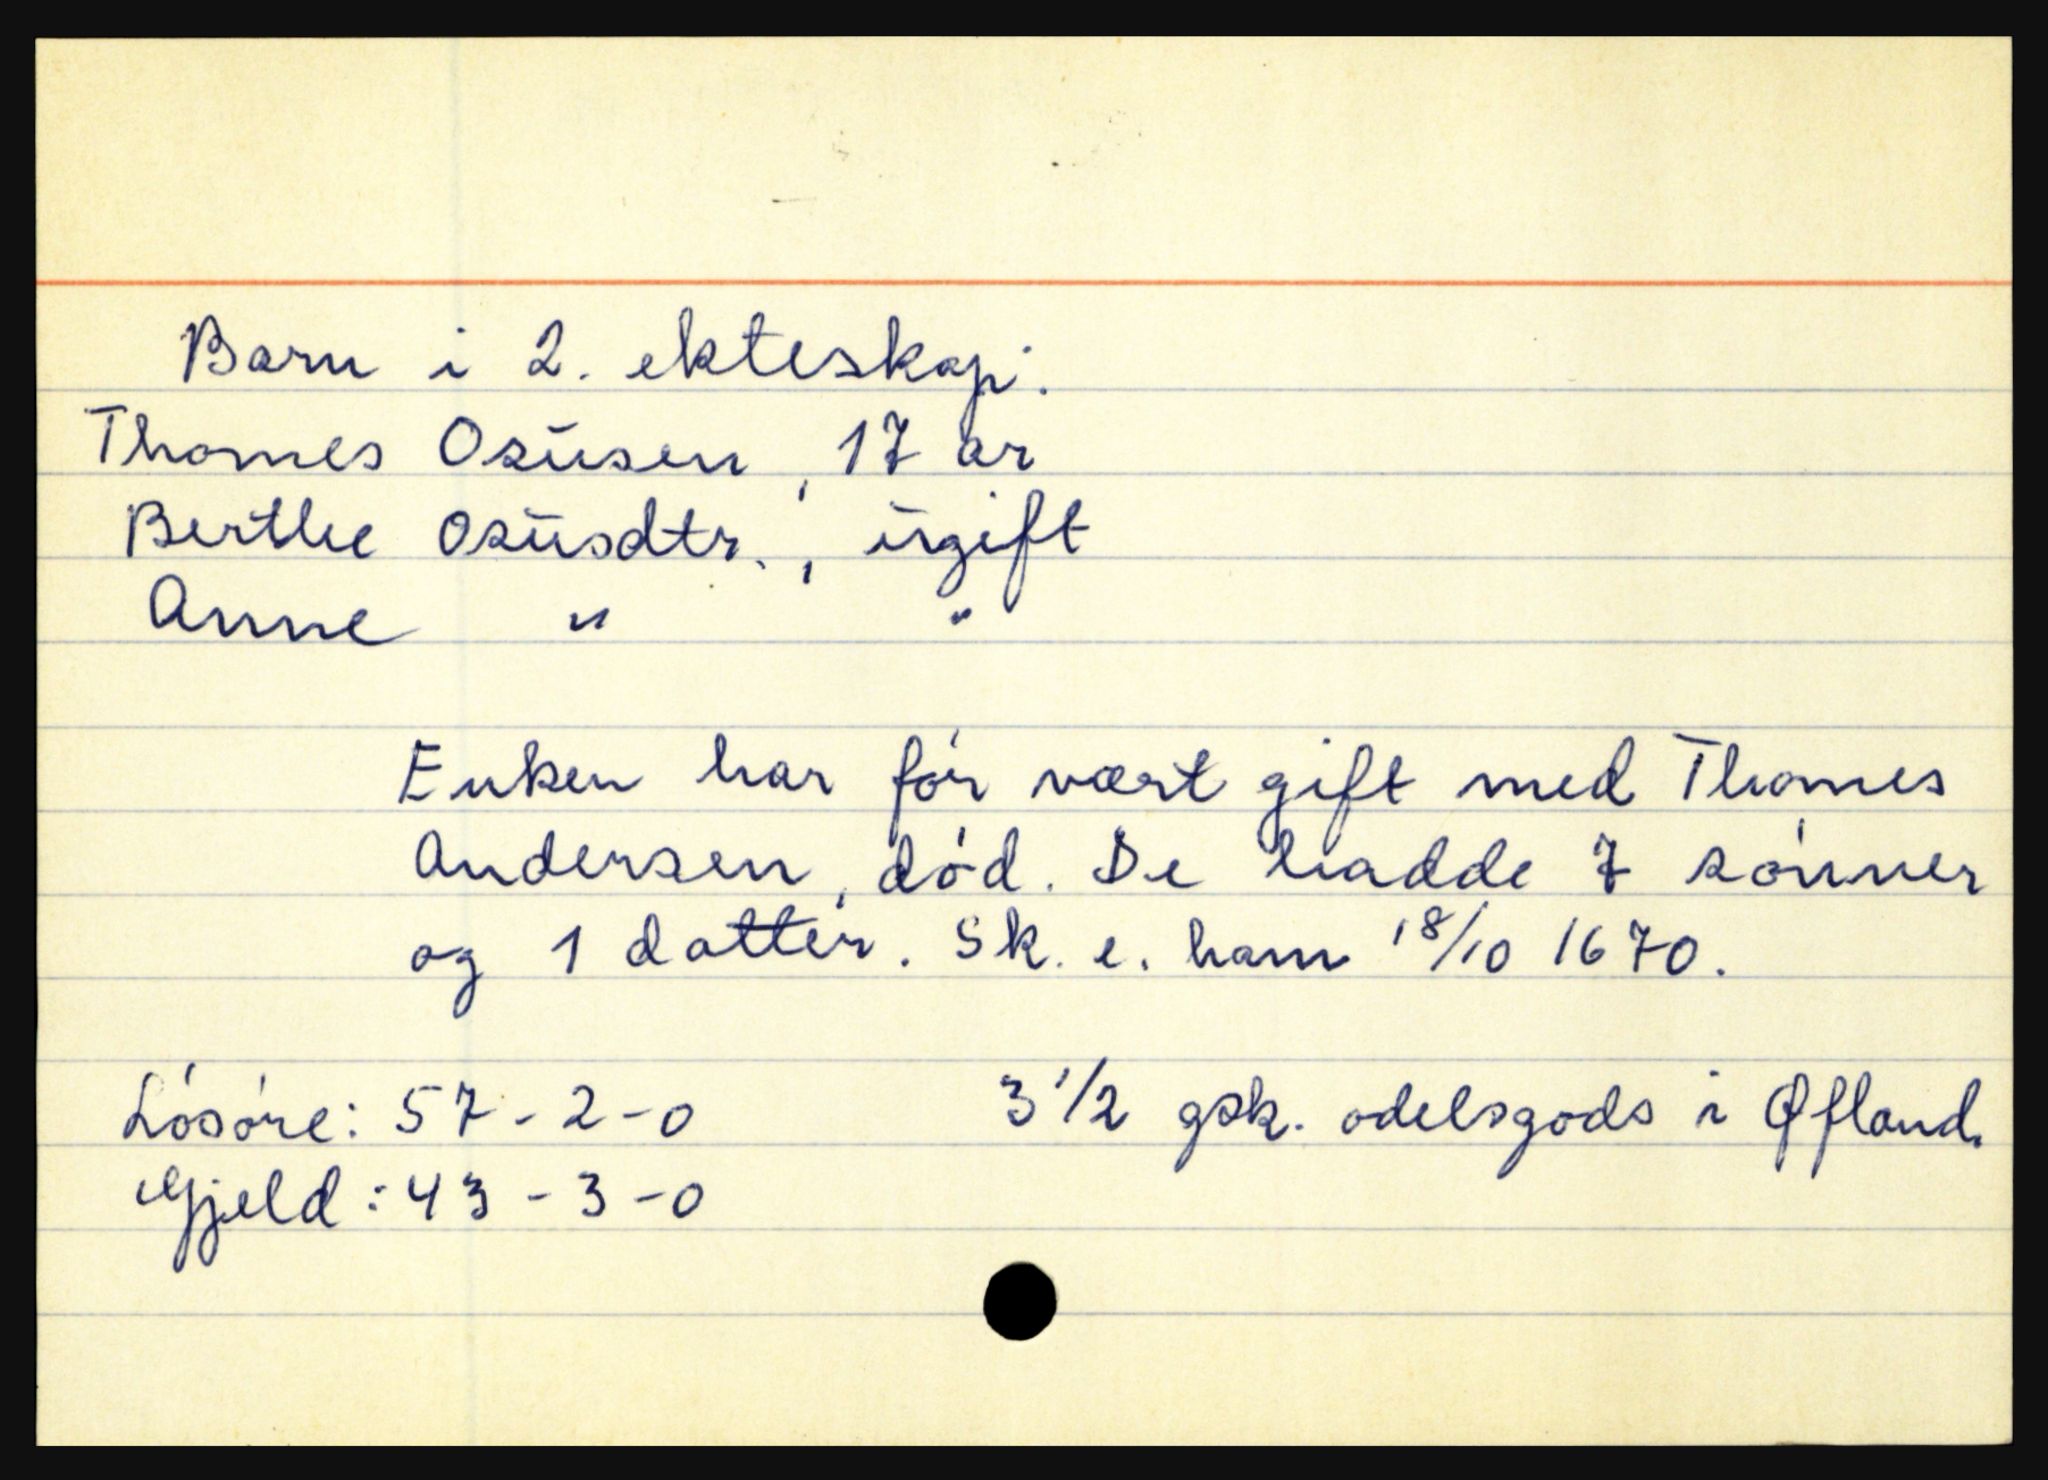 Barn i 2. ekteskap:
Thomes Osusen, 17 år
Berthe Osusdtr., ugift
Anne " "
Enken har før vært gift med Thomes
Andersen, død. De hadde 7 sønner
og 1 datter. Sk. e. ham 18/10 1670.
Løsøre: 57-2-0 3 1/2 gsk. odelsgods i Øfland.
Gjeld: 43-3-0